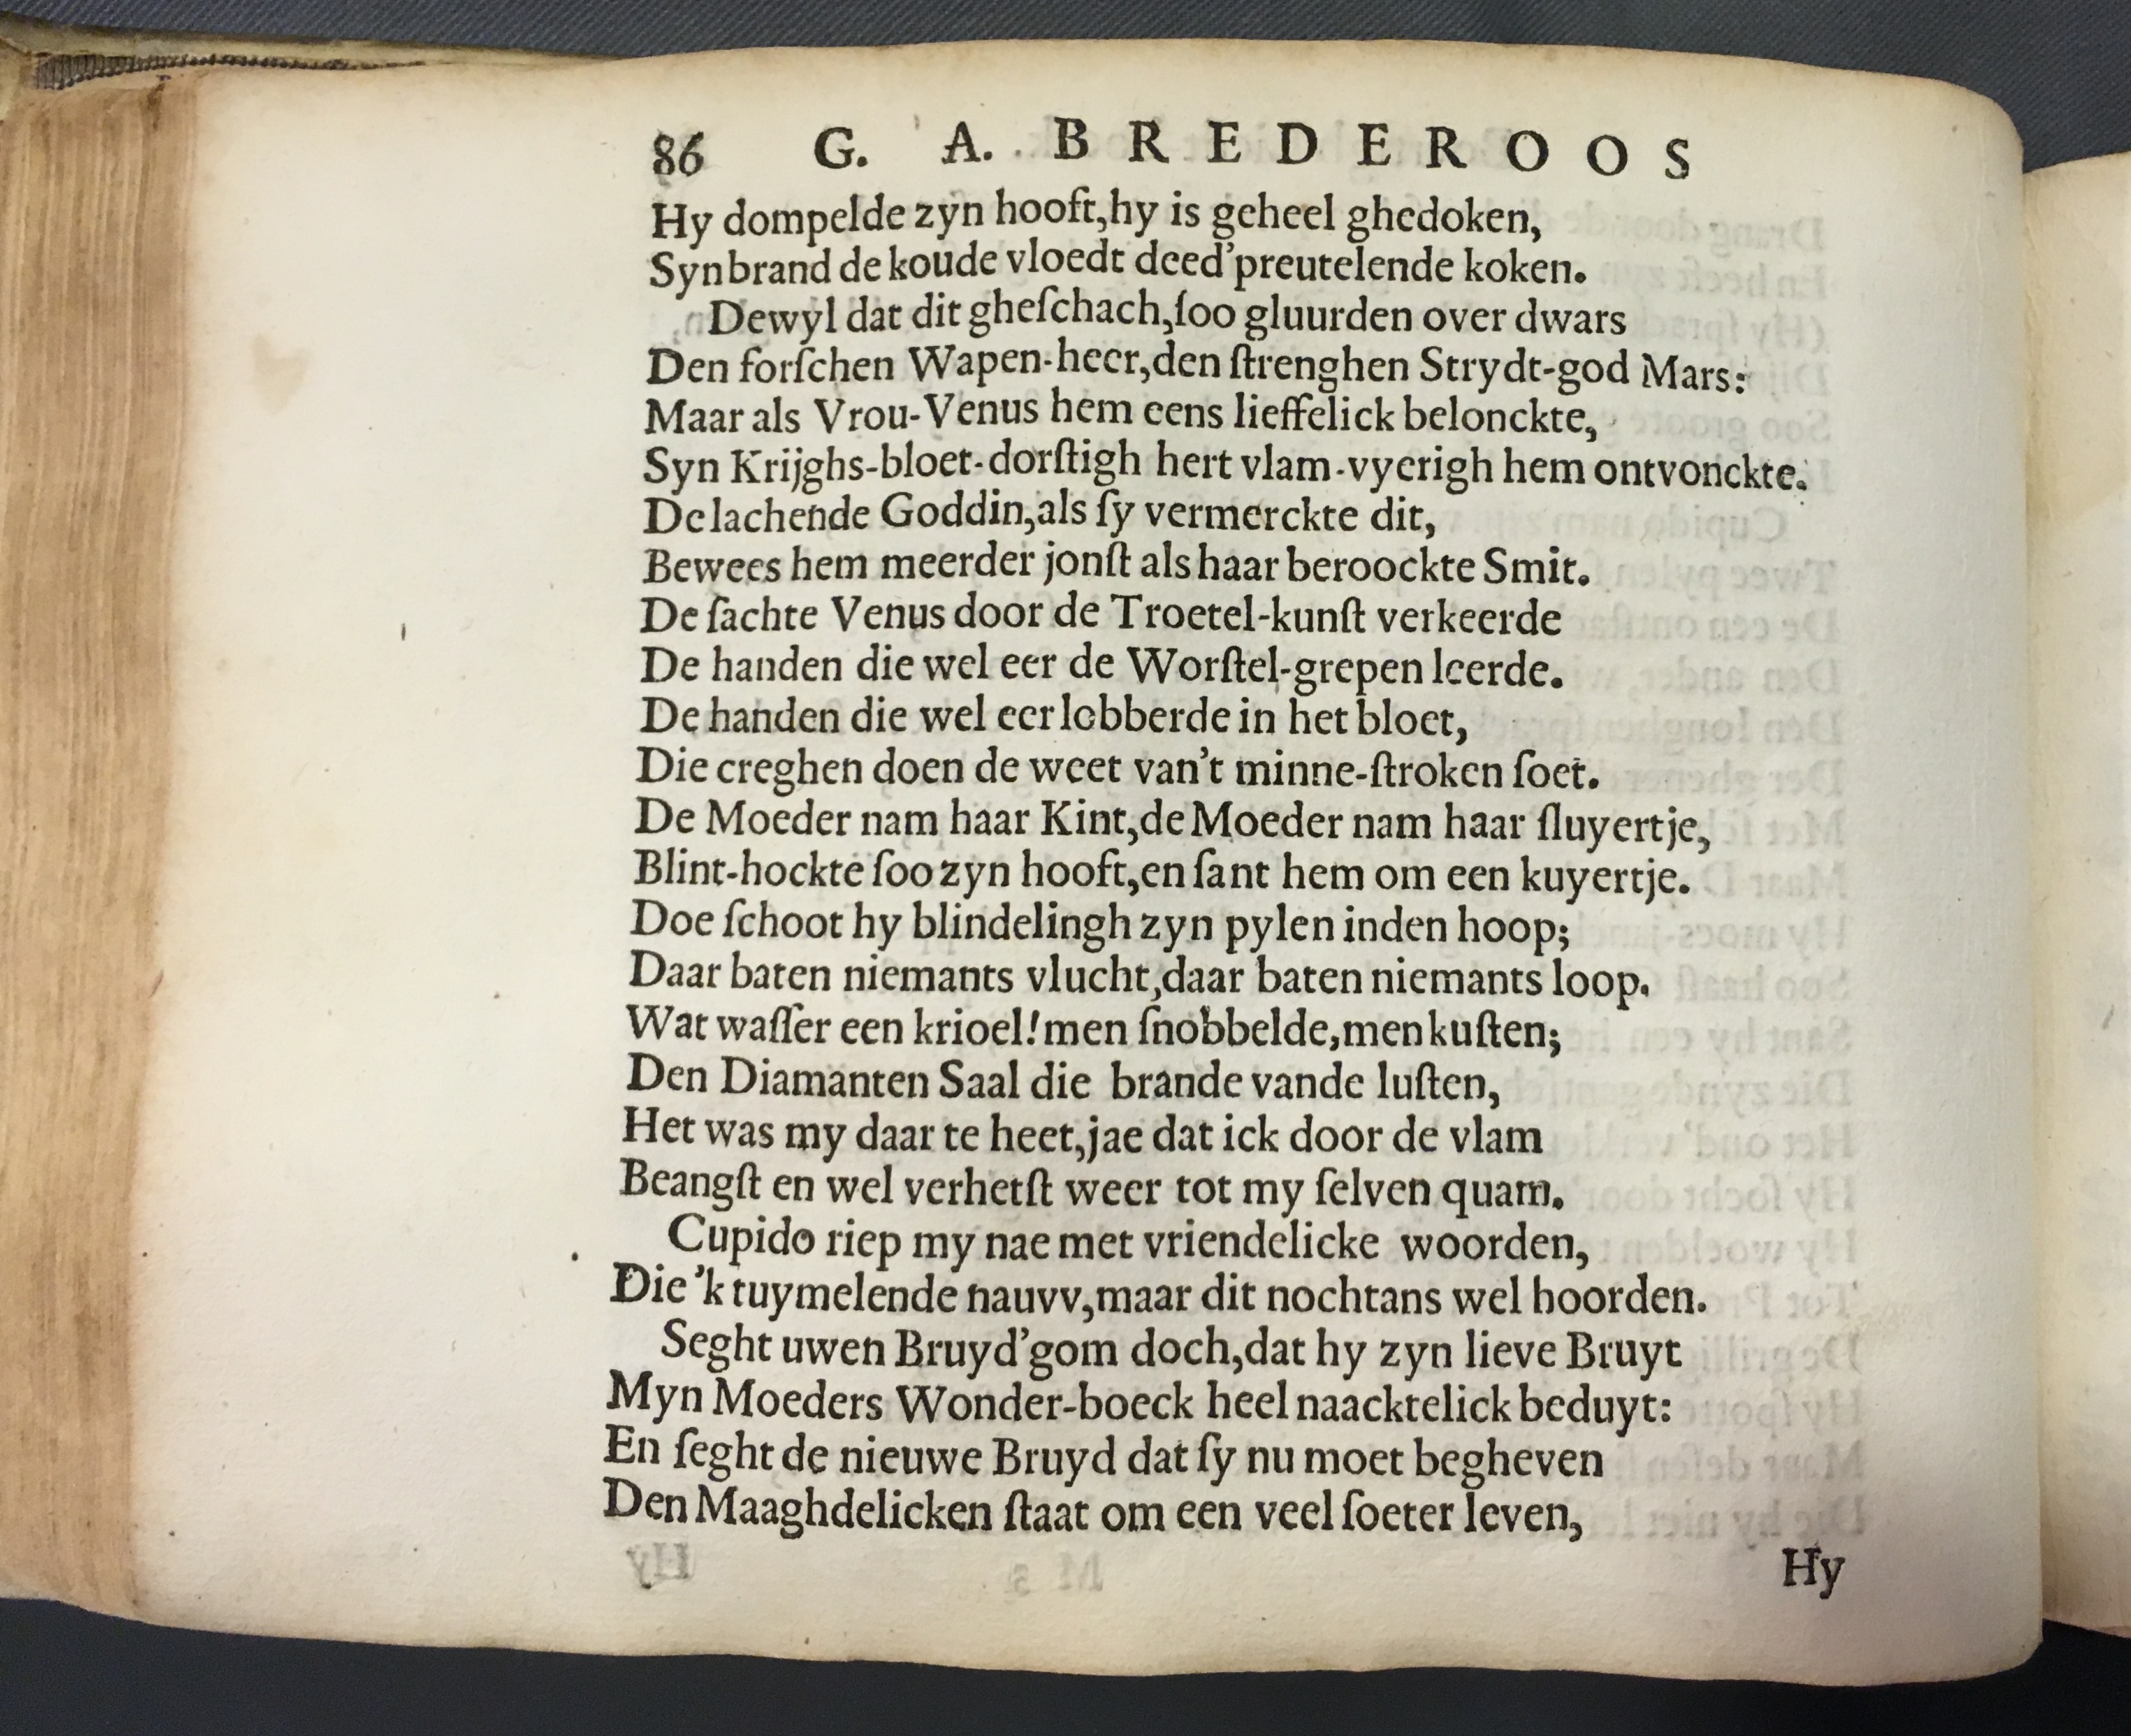 86 G. A. BREDEROOS
Hy dompelde zyn hooft, hy is geheel ghedoken,
Syn brand de koude vloedt deed'preutelende koken.
Dewyl dat dit gheſchach, ſoo gluurden over dwars
Den forſchen Wapen-heer, den ſtrenghen Strydt-god Mars:
Maar als Vrou-Venus hem eens lieffelick belonckte,
Syn Krijghs-bloet-dorſtigh hert vlam-vyerigh hem ontvonckte.
De lachende Goddin, als ſy vermerckte dit,
Bewees hem meerder jonſt als haar beroockte Smit.
De ſachte Venus door de Troetel-kunſt verkeerde
De handen die wel eer de Worſtel-grepen leerde.
De handen die wel eer lobberde in het bloet,
Die creghen doen de weet van't minne-ſtroken ſoet.
De Moeder nam haar Kint, de Moeder nam haar ſluyertje,
Blint-hockte ſoo zyn hooft, en ſant hem om een kuyertje.
Doe ſchoot hy blindelingh zyn pylen inden hoop;
Daar baten niemants vlucht, daar baten niemants loop.
Wat waſſer een krioel! men ſnobbelde, men kuſten;
Den Diamanten Saal die brande vande luſten,
Het was my daar te heet, jae dat ick door de vlam
Beangſt en wel verhetſt weer tot my ſelven quam.
Cupido riep my nae met vriendelicke woorden,
Die 'k tuymelende nauvv, maar dit nochtans wel hoorden.
Seght uwen Bruyd'gom doch, dat hy zyn lieve Bruyt
Myn Moeders Wonder-boeck heel naacktelick beduyt:
En ſeght de nieuwe Bruyd dat ſy nu moet begheven
Den Maaghdelicken ſtaat om een veel ſoeter leven,
Hy